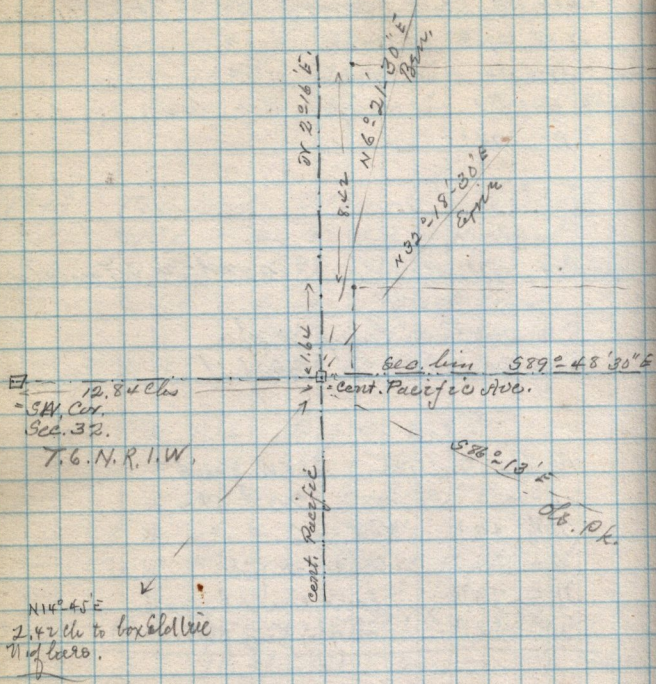 N 2°16'E.
N6°-21'-30"E
8.42
N32°-18'-30"E
1.64
Sec. line S89°-48'30"E
12.84 Chs
Cent. Pacific Ave.
S.W. Cor.
Sec. 32.
T.6.N.R.1.W.
S86°-13'E
Ob. Pk.
Cent. Pacific
N14°-45'E
2.42 ch to box